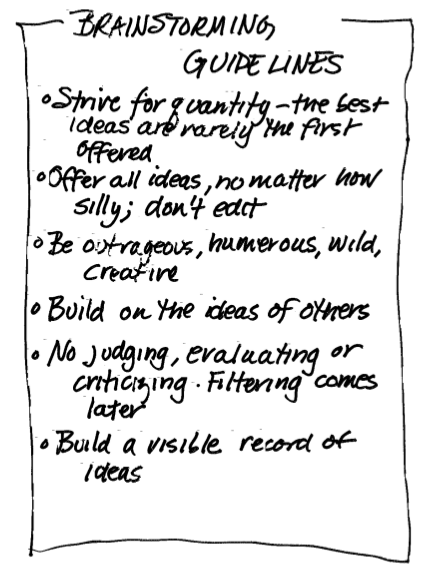 BRAINSTORMING
GUIDELINES
• Strive for quantity - the best
ideas are rarely the first
offered
• Offer all ideas, no matter how
silly; don't edit
• Be outrageous, humerous, wild,
creative
• Build on the ideas of others
• No judging, evaluating or
criticizing. Filtering comes
later
• Build a visible record of
ideas